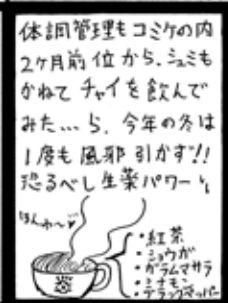 体調管理もコミケの内
2ヶ月前位から、シュミも
かねてチャイを飲んで
みた…ら、今年の冬は
1度も風邪引かず!!
恐るべし生薬パワー
ほんわ〜♥
・紅茶
・ショウガ
・ガラムマサラ
・シナモン
・ブラックペッパー